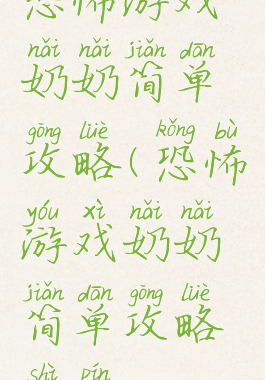 恐怖游戏
nǎi nǎi jiǎn dān
奶奶简单
gōng lüè kǒng bù
攻略(恐怖
yóu xì nǎi nǎi
游戏奶奶
jiǎn dān gōng lüè
简单攻略
shì pín